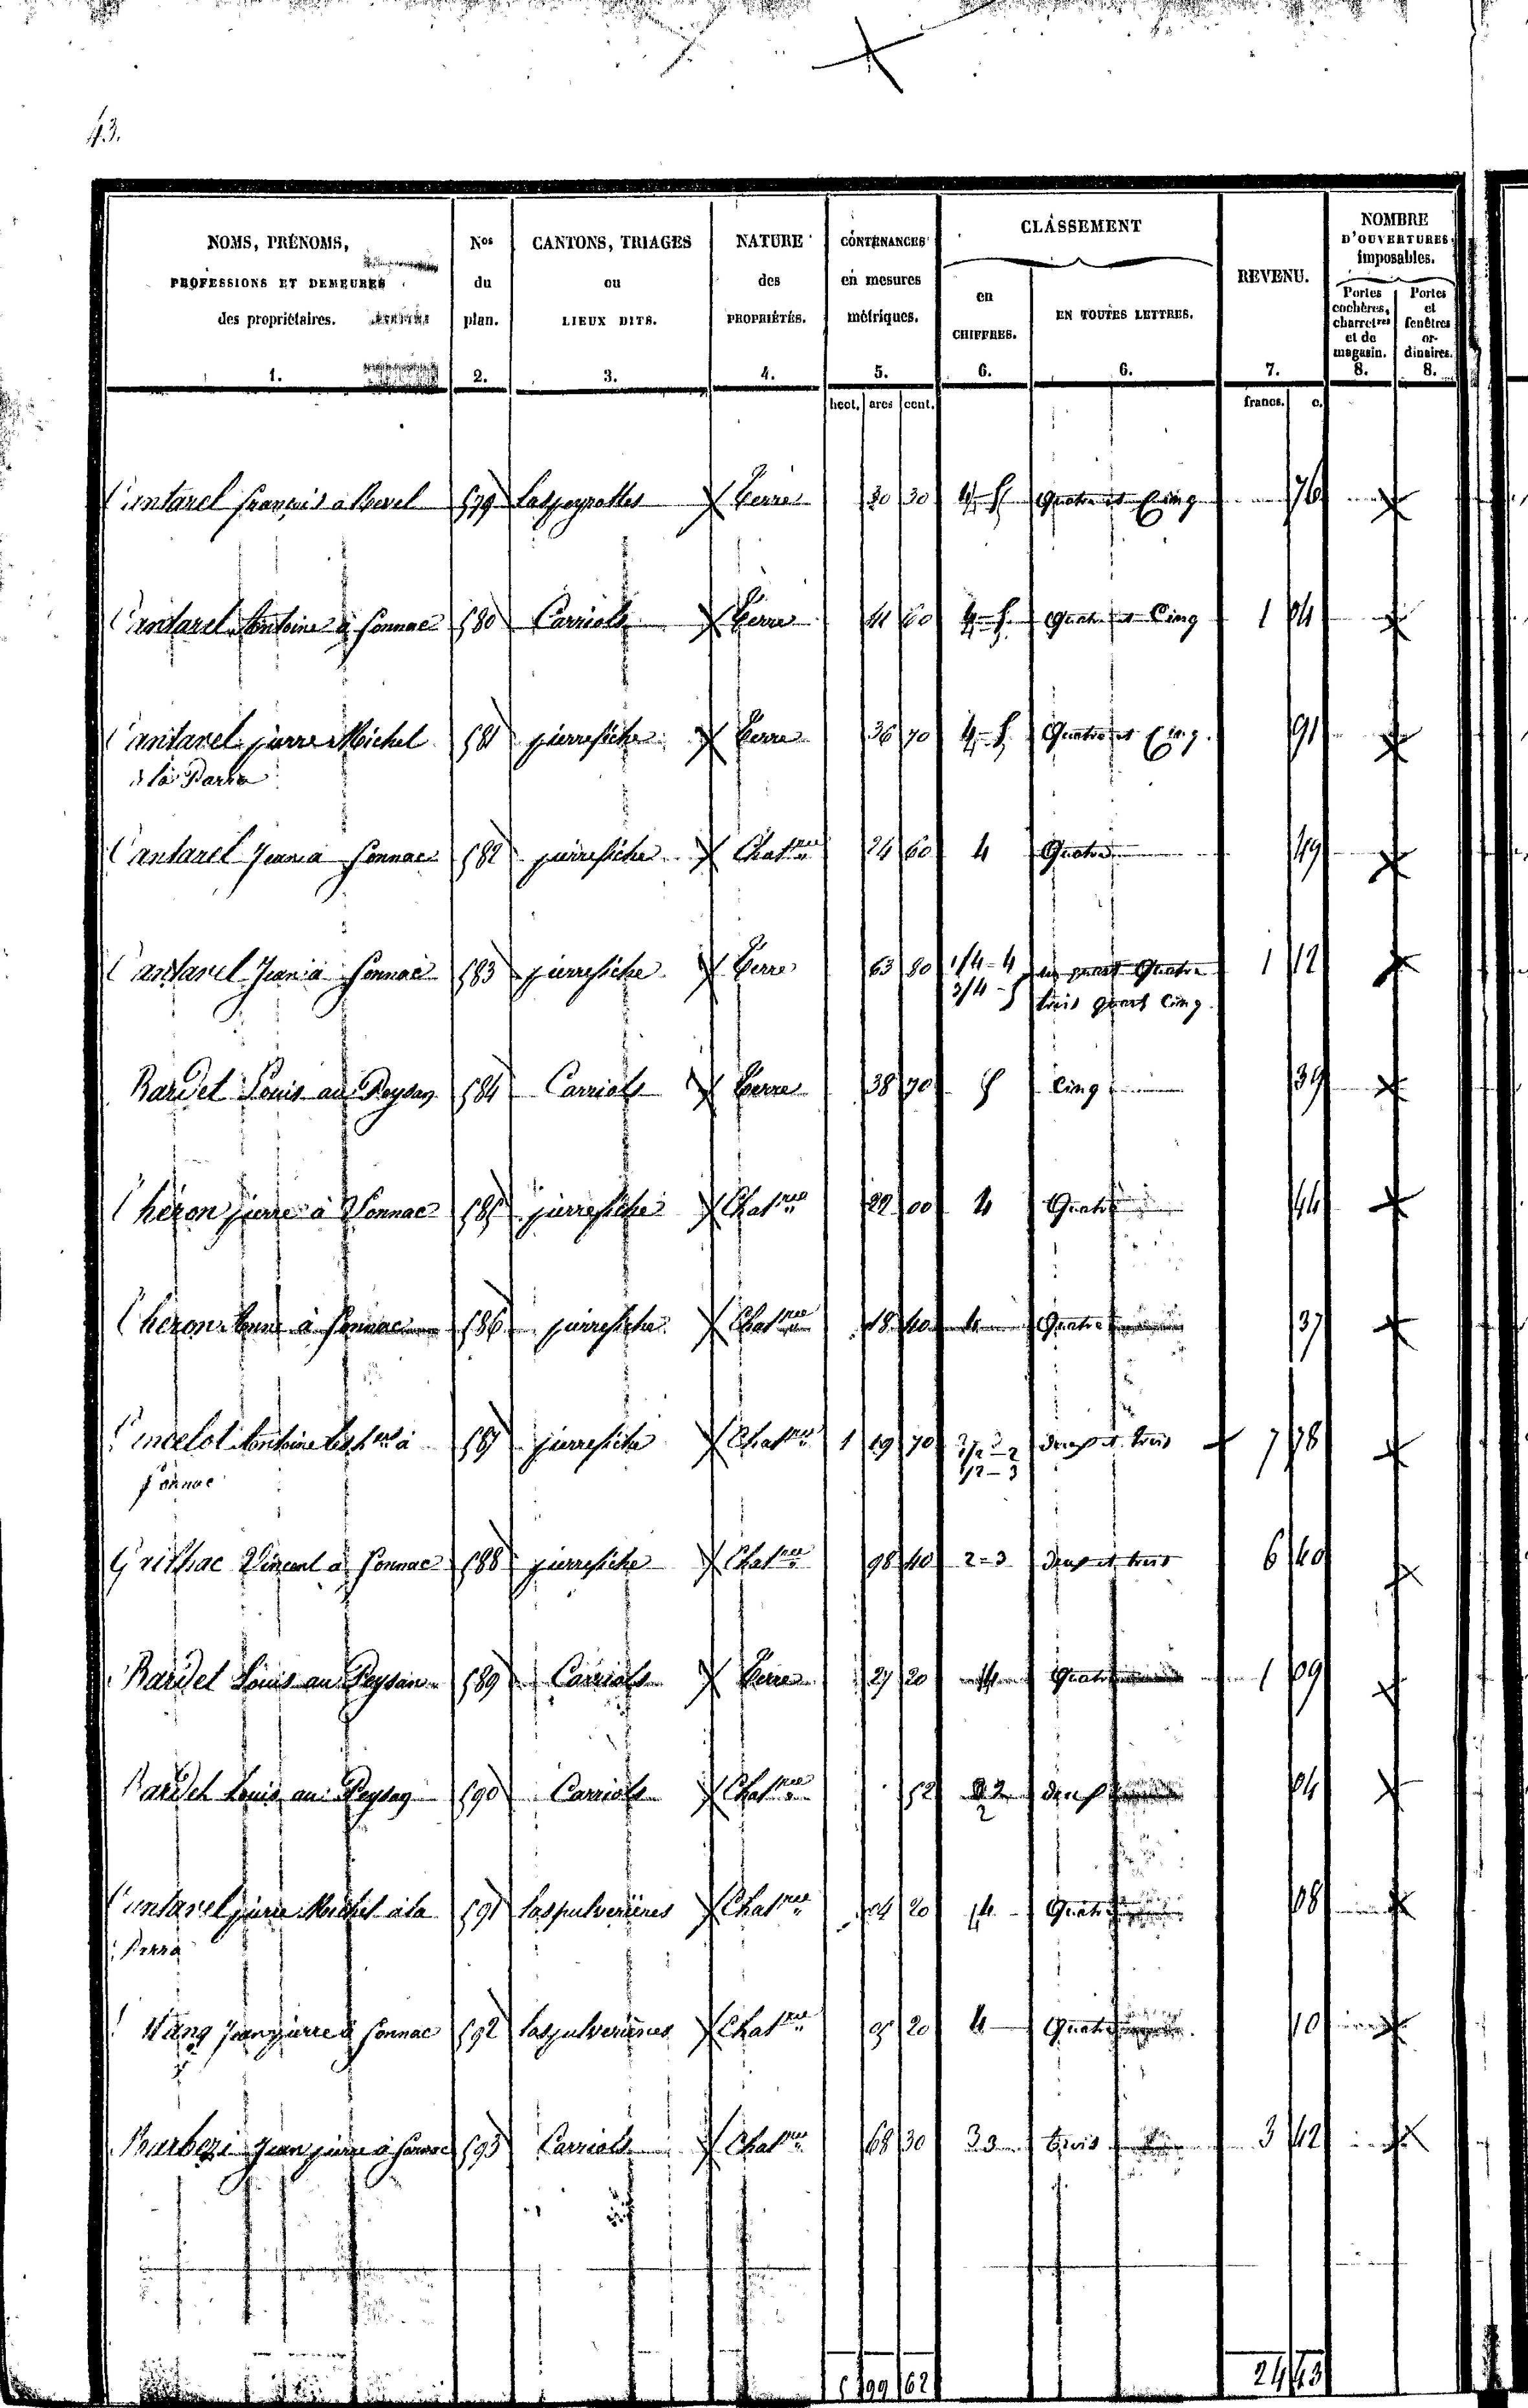 43.
NOMS, PRÉNOMS, PROFESSIONS ET DEMEURES des propriétaires. 1.
Nos du plan. 2.
CANTONS, TRIAGES ou LIEUX DITS. 3.
NATURE des PROPRIÉTÉS. 4.
CONTENANCES en mesures métriques. 5.
CLASSEMENT
en CHIFFRES. 6.
EN TOUTES LETTRES. 6.
REVENU. 7.
NOMBRE D'OUVERTURES imposables.
Portes cochères, charretres et de magasin. 8.
Portes et fenêtres ordinaires. 8.
hect. ares cent. francs. c.
Cantarel françois à 579 Laspeyrottes Terre 30 30 4-5 Quatre et Cinq 76
Cantarel Antoine à Sonnac 580 Carriols Terre 41 60 4-5 Quatre et Cinq 1 04
Cantarel pierre Michel 581 pierrefiche Terre 36 70 4-5 Quatre et Cinq. 91
à la Parra
Cantarel Jean à Sonnac 582 pierrefiche Chatree 24 60 4 Quatre 49
Cantarel Jean à Sonnac 583 pierrefiche Terre 63 80 1/4-4 un quart Quatre 1 12
3/4-5 trois quart Cinq.
Bardet Louis au Peysan 584 Carriols Terre 38 70 5 Cinq 39
Chéron pierre à Sonnac 585 pierrefiche Chatree 22 00 4 Quatre 44
Chéron à Sonnac 586 pierrefiche Chatree 18 40 4 Quatre 37
Antoine les hers à 587 pierrefiche Chatree 1 19 70 1/2-2 deux et trois 7 78
Sonnac 1/2-3
Vincent à Sonnac 588 pierrefiche Chatree 98 40 2=3 deux et trois 6 40
Bardet Louis au Peysan 589 Carriols Terre 27 20 4 Quatre 1 09
Bardet Louis au Peysan 590 Carriols Chatree 52 2 deux 04
2
Cantarel pierre Michel à la 591 Laspulverières Chatree 04 20 4 Quatre 08
Parra
Jean pierre à Sonnac 592 Laspulverières Chatree 5 20 4 Quatre 10
Jean pierre à Sonnac 593 Carriols Chatree 68 30 3 trois 3 42
5 99 62 24 43